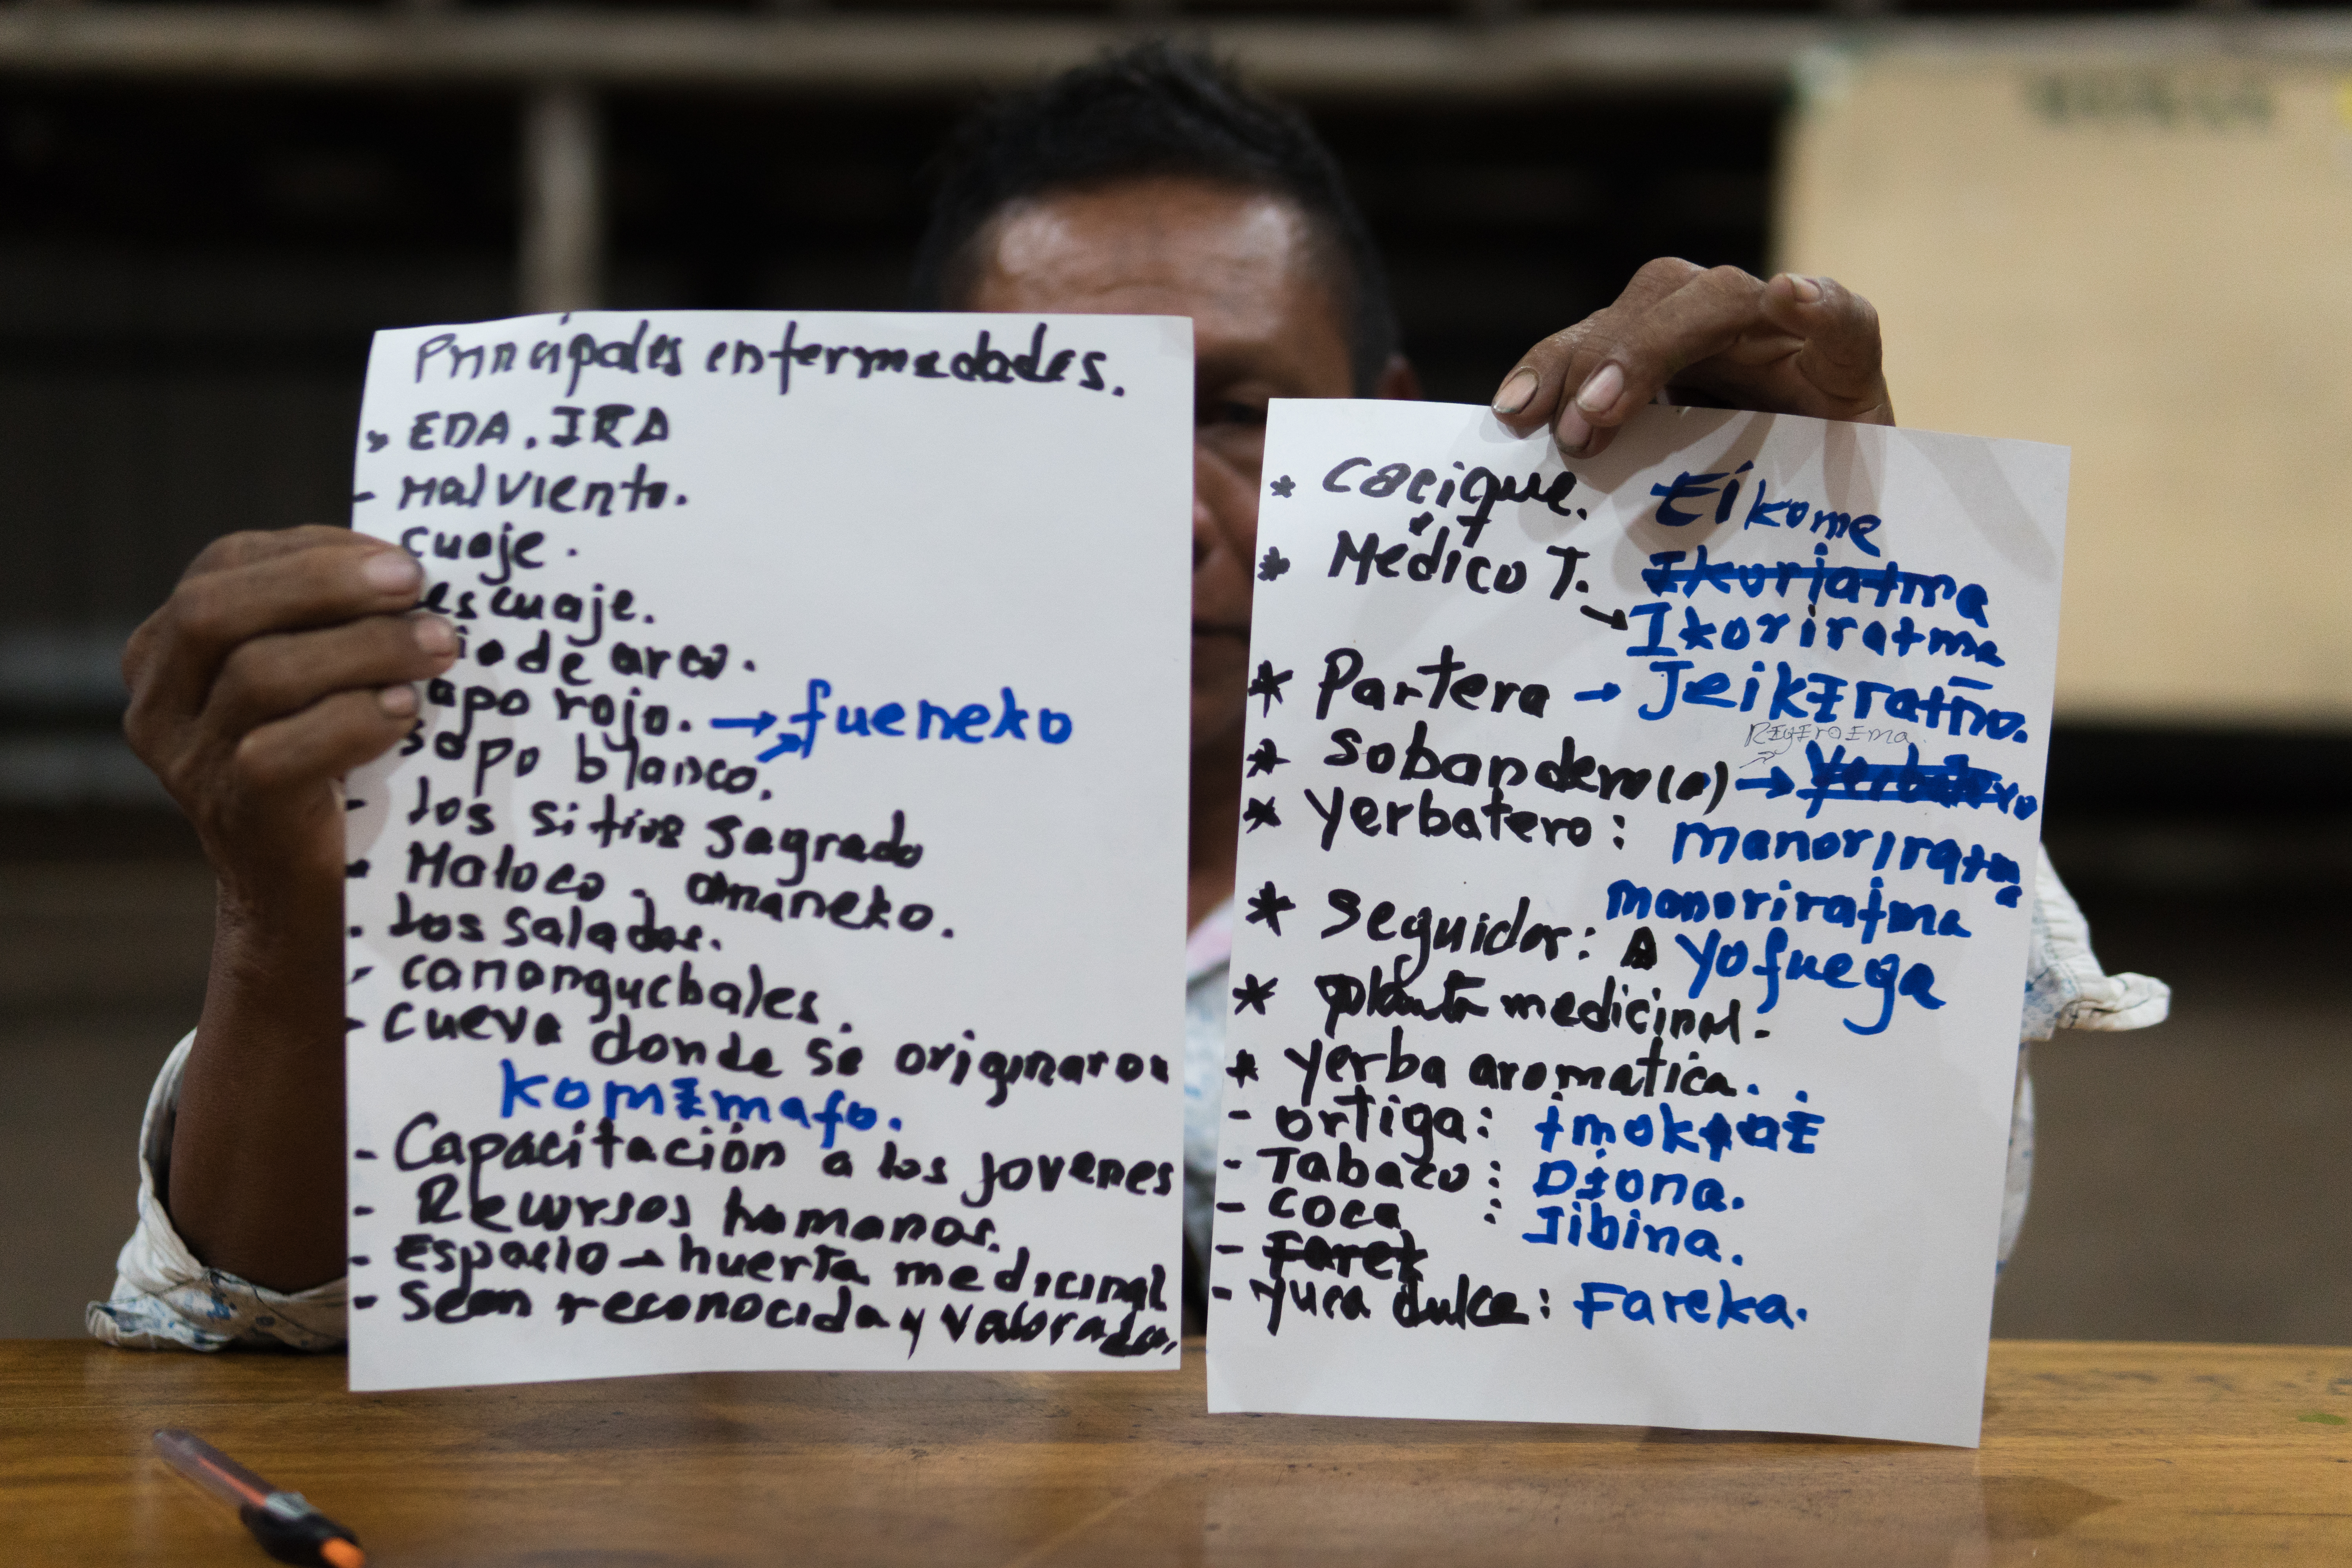 Principales enfermedades.
» EDA. IRA
- Mal viento.
cuaje.
escuaje.
io de arco.
apo rojo. → fueneko
sapo blanco.
- los sitios sagrado
- Maloco. amaneko.
- los salados.
- canangucbales.
- cueva donde se originaron
komɨmafo.
- Capacitación a los jovenes
- Recursos humanos.
- Espacio - huerta medicinal
- Sean reconocida y valorada.
* cacique. Eíkome
* Médico T. Ikoriatma
→ Ikoriratma
* Partera → Jeikɨratño.
* sobandero(a) →
* yerbatero: manoriratma
manoriratma
* seguidor: A yofuega
* planta medicinal.
* yerba aromatica.
- ortiga:
- Tabaco: Dɨona.
- coca : Jibina.
- Farek
- yuca dulce: Fareka.